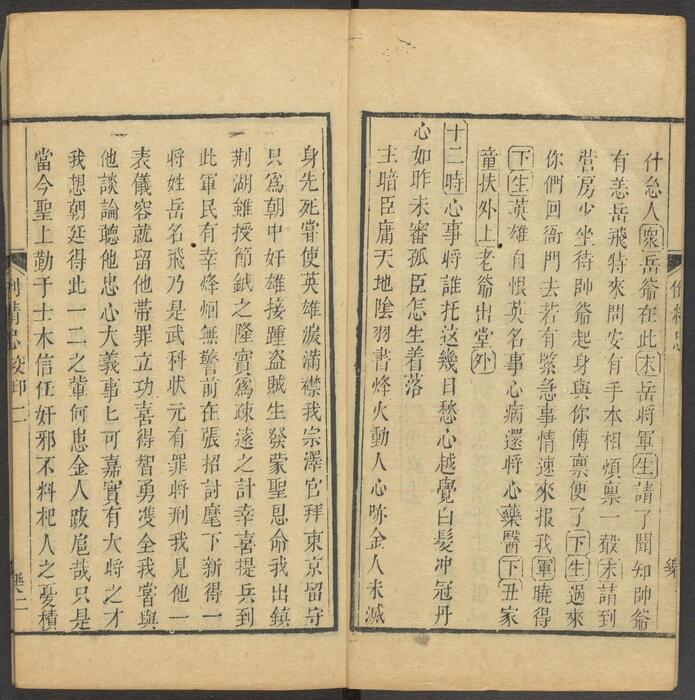 什急人衆岳爺在此末岳將軍生請了聞知帥爺
有恙岳飛特來問安有手本相煩禀一聲末請到
营房少坐待帥爺起身與你傳禀便了下生過來
你們回衙門去若有緊急事情速來报我軍曉得
下生英雄自恨英名事心病還將心藥醫下丑家
童扶外上老爺出堂外
十二時心事將誰托这幾日愁心越覺白髮冲冠丹
心如昨未審孤臣怎生着落
主暗臣庸天地陰羽書烽火動人心哧金人未滅
身先死甞使英雄淚滿襟我宗澤官拜東京留守
只為朝中奸雄接踵盗賊生發蒙聖恩命我出鎮
荆湖雖授節鉞之隆實為疎遠之計幸喜提兵到
此軍民有幸烽烟無警前在張招討麾下新得一
將姓岳名飛乃是武科狀元有罪將刑我見他一
表儀容就留他带罪立功喜得智勇双全我甞與
他談論聽他忠心大義事匕可嘉實有大將之才
我想朝廷得此一二之輩何患金人跋扈哉只是
當今聖上勤于土木信任奸邪不料杞人之憂積
精忠